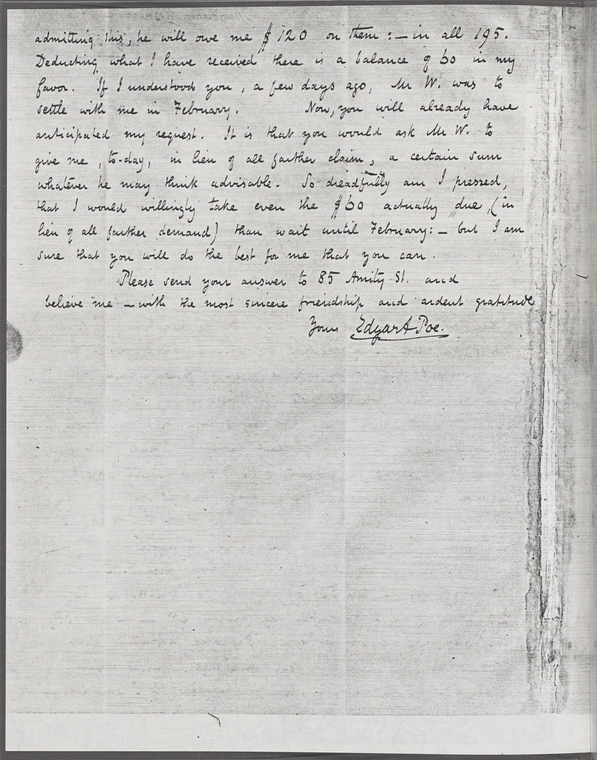 admitting this, he will owe me $120 on them : — in all 195.
Deducting what I have received there is a balance of 60 in my
favor. If I understood you, a few days ago, Mr W. was to
settle with me in February. Now, you will already have
anticipated my request. It is that you would ask Mr W. to
give me, to-day, in lieu of all farther claim, a certain sum
whatever he may think advisable. So dreadfully am I pressed,
that I would willingly take even the $60 actually due, (in
lieu of all farther demand) than wait until February: — but I am
sure that you will do the best for me that you can.
Please send your answer to 85 Amity St. and
believe me — with the most sincere friendship and ardent gratitude
Yours Edgar A Poe.